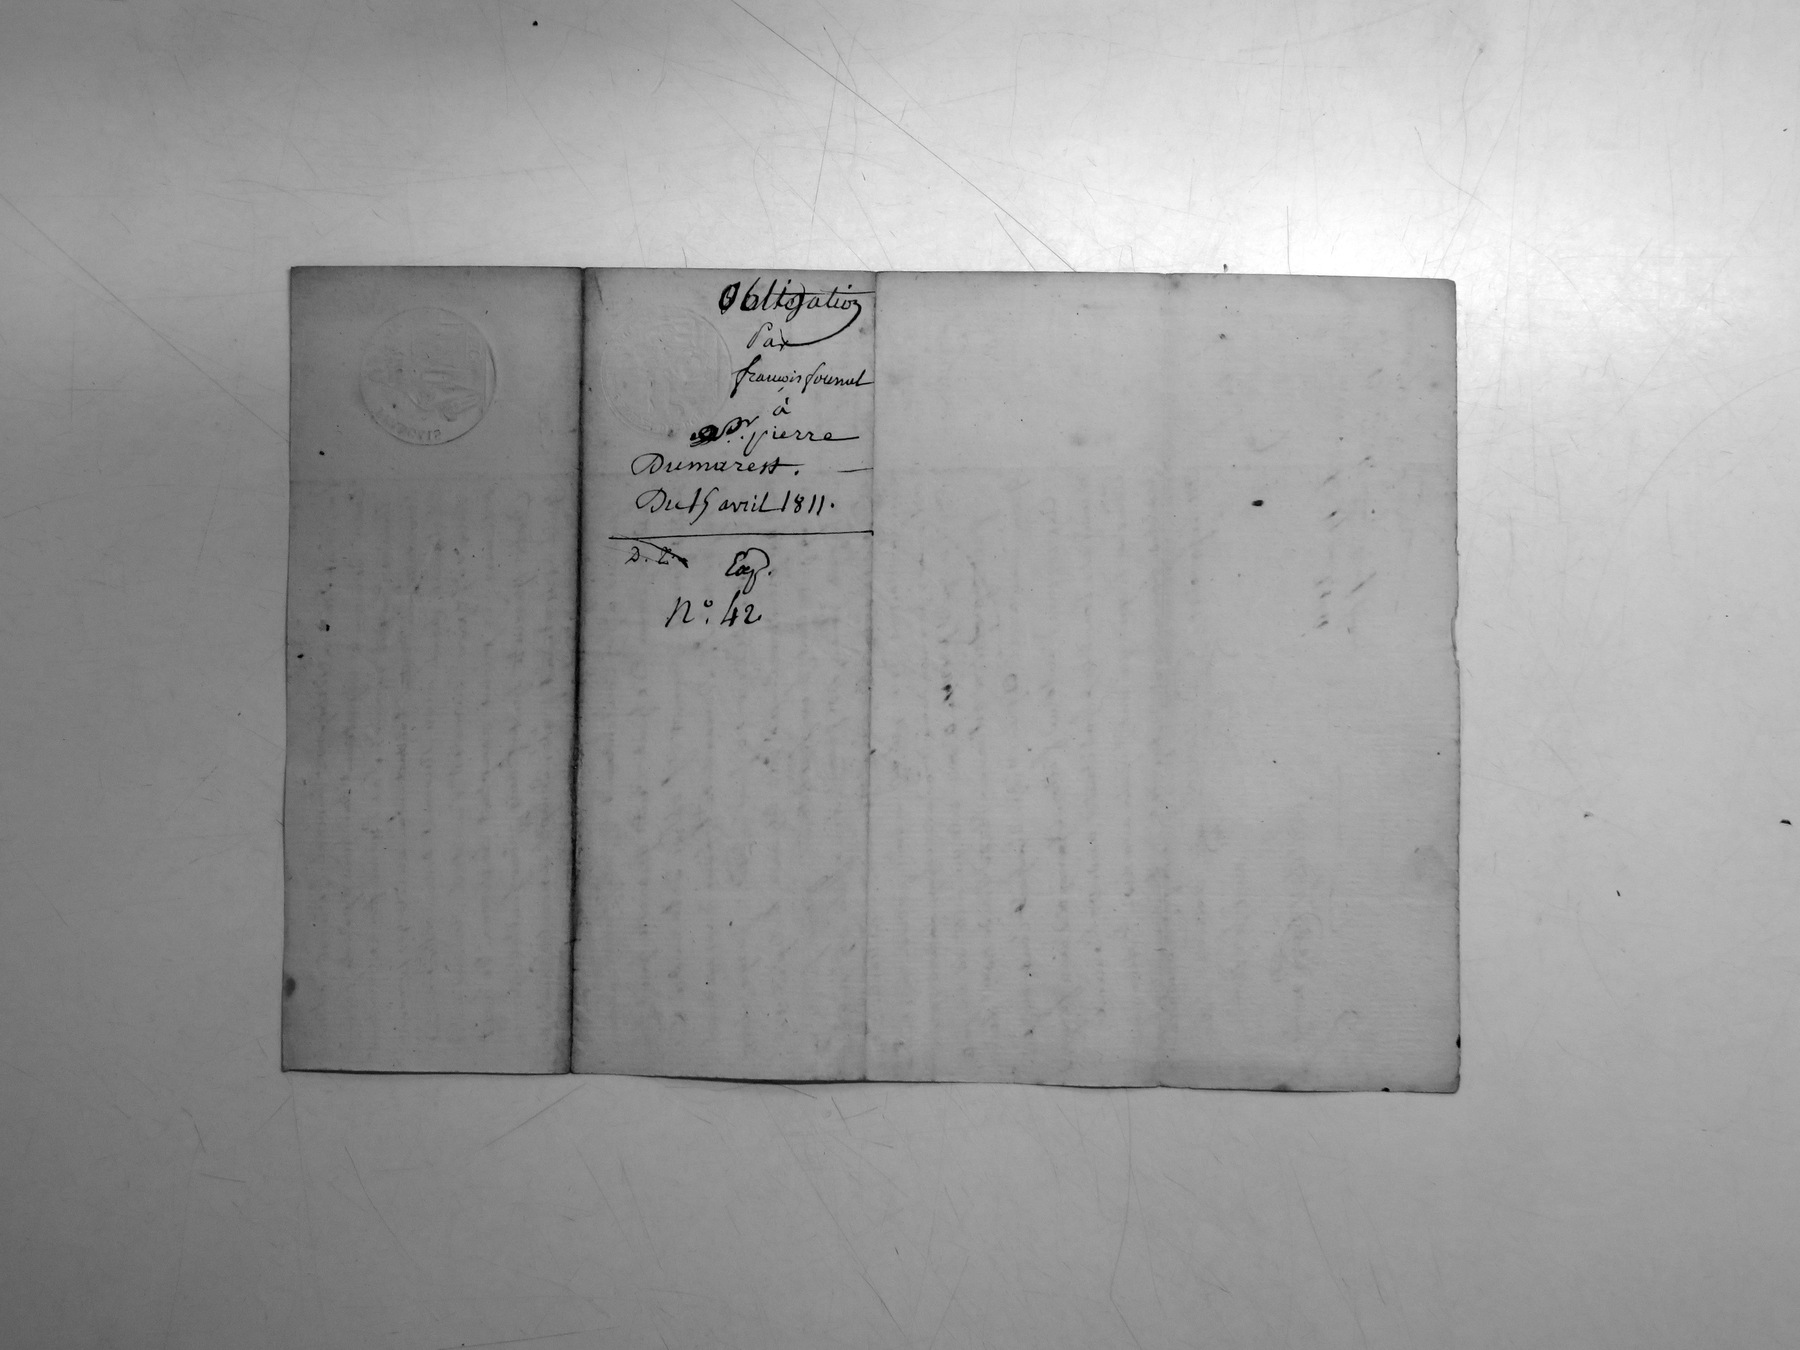 Obligation
Par
françois fournel
à
Sr. pierre
Dumarest.
Du 15 avril 1811.
Exp.
N°. 42